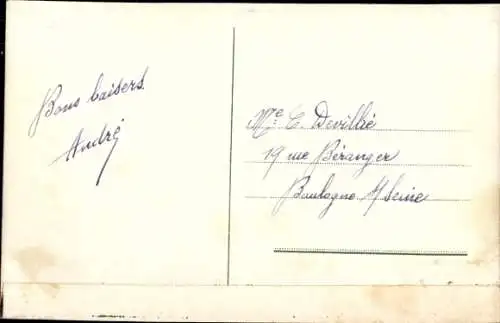 Bons baisers
André
Me C. Devillié
19 rue Béranger
Boulogne s/Seine